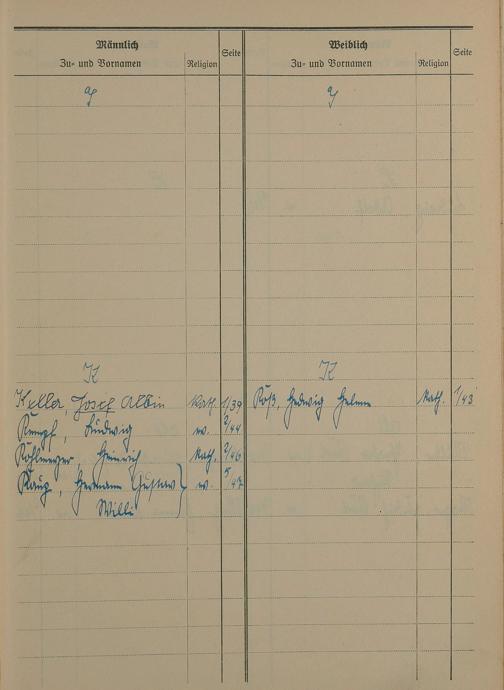 Männlich
Zu- und Vornamen
Religion
Seite
Weiblich
Zu- und Vornamen
Religion
Seite
J
J
K
K
Keller, Josef Albin Kath. 1/39
Kempf, Ludwig ev. 2/44
Kohlmeyer, Heinrich Kath. 2/46
Kauz, Hermann Gustav ev. 5/47
Willi
Köß, Hedwig Helene Kath. 1/43